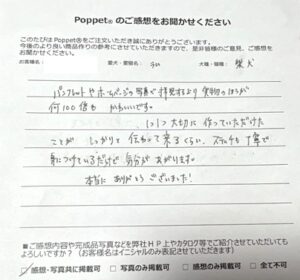 Poppet® のご感想をお聞かせください
このたびはPoppet®をご注文いただき誠にありがとうございます。
今後のより良い商品作りの参考にさせていただきますので、是非皆様のご意見、ご感想を
お聞かせください。
お客様名: 愛犬・愛猫名: 犬種・猫種: 柴犬
パンフレットやホームページの写真で拝見するより実物のほうが
何100倍も かわいいです。
1つ1つ 大切に 作っていただけた
ことが しっかりと 伝わって来るくらい、ステッチも丁寧で
身につけているだけで 気分があがります。
本当に ありがとうございました!
■ご感想内容や完成品写真などを弊社HP上やカタログ等でご紹介させていただいても
よろしいですか?(お客様名はイニシャルのみ表記させていただきます)
感想・写真共に掲載可 □写真のみ掲載可 □感想のみ掲載可 □全て不可